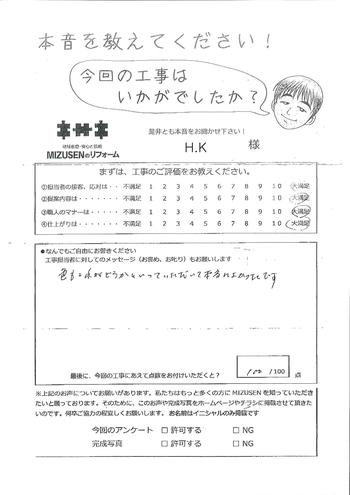 本音を教えてください！
今回の工事は
いかがでしたか？
是非とも本音をお聞かせ下さい！
地域密着・安心と信頼
MIZUSENのリフォーム
H.K 様
まずは、工事のご評価をお教えください。
①担当者の接客、応対は・・・ 不満足 1 2 3 4 5 6 7 8 9 10 大満足
②提案内容は・・・・・ 不満足 1 2 3 4 5 6 7 8 9 10 大満足
③職人のマナーは・・・・ 不満足 1 2 3 4 5 6 7 8 9 10 大満足
④仕上がりは・・・・・ 不満足 1 2 3 4 5 6 7 8 9 10 大満足
●なんでもご自由にお書きください
工事担当者に対してのメッセージ（お褒め、お叱り）もお願いします
いっていただいて本当に
です
最後に、今回の工事にあえて点数をお付けいただくと？ 100 /100 点
※上記のお声についてお願いがあります。私たちはもっと多くの方に MIZUSEN を知っていただき
たいと願っております。そのために、このお声や完成写真をホームページやチラシに掲載させて頂きた
いのです。何卒ご協力の程宜しくお願いします。 お名前はイニシャルのみ掲載です
今回のアンケート □ 許可する □ NG
完成写真 □ 許可する □ NG